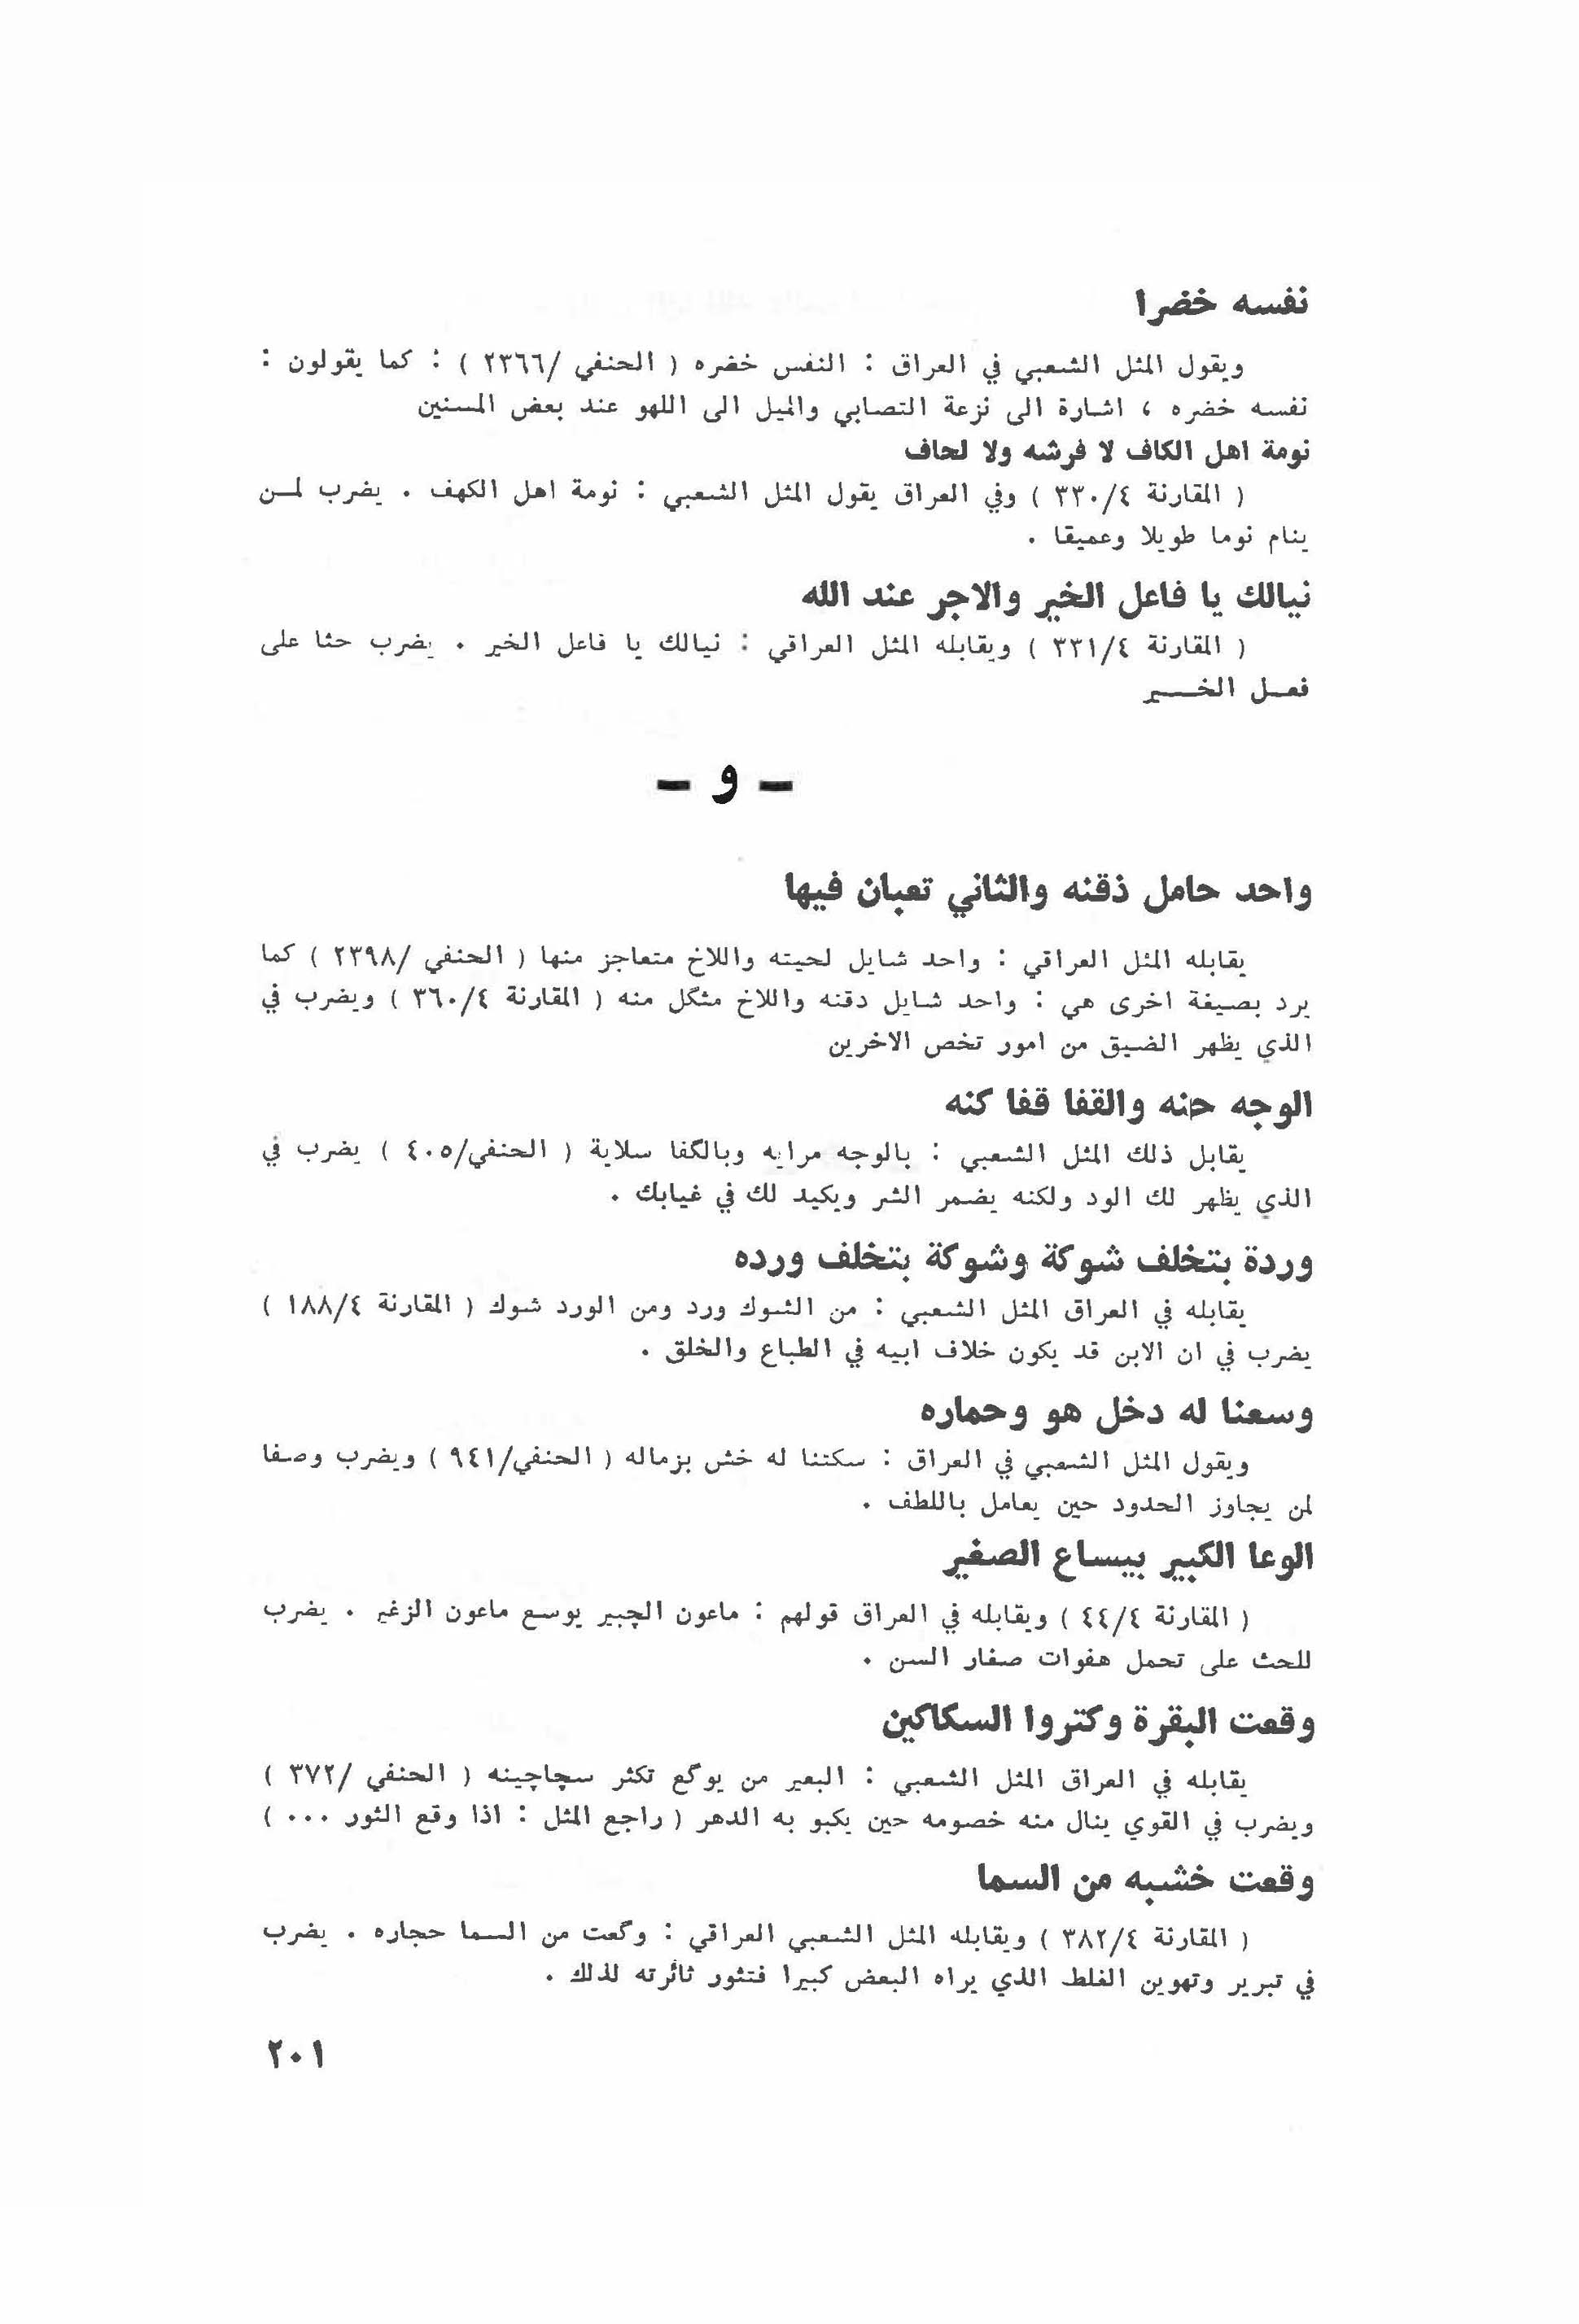 نفسه خضرا
ويقول المثل الشعبي في العراق : النفس خضره ( الحنفي /٢٣٦٦ ) : كما يقولون :
نفسه خضره ، اشارة الى نزعة التصابي والميل الى اللهو عند بعض المسنين
نومة اهل الكاف لا فرشه ولا لحاف
( المقارنة ٣٣٠/٤ ) وفي العراق يقول المثل الشعبي : نومة اهل الكهف . يضرب لمـن
ينام نوما طويلا وعميقا .
نيالك يا فاعل الخير والاجر عند الله
( المقارنة ٣٣١/٤ ) ويقابله المثل العراقي : نيالك يا فاعل الخير . يضرب حثا على
فعـل الخـــير
– و –
واحد حامل ذقنه والثاني تعبان فيها
يقابله المثل العراقي : واحد شايل لحيته واللاخ متعاجز منها ( الحنفي /٢٣٩٨ ) كما
يرد بصيغة اخرى هي : واحد شايل دقنه واللاخ مثگل منه ( المقارنة ٣٦٠/٤ ) ويضرب في
الذي يظهر الضيق من امور تخص الاخرين
الوجه حنه والقفا قفا كنه
يقابل ذلك المثل الشعبي : بالوجه مرايه وبالگفا سلاية ( الحنفي/٤٠٥ ) يضرب في
الذي يظهر لك الود ولكنه يضمر الشر ويكيد لك في غيابك .
وردة بتخلف شوكة وشوكة بتخلف ورده
يقابله في العراق المثل الشعبي : من الشوك ورد ومن الورد شوك ( المقارنة ١٨٨/٤ )
يضرب في ان الابن قد يكون خلاف ابيه في الطباع والخلق .
وسعنا له دخل هو وحماره
ويقول المثل الشعبي في العراق : سكتنا له خش بزماله ( الحنفي/٩٤١ ) ويضرب وصفا
لمن يجاوز الحدود حين يعامل باللطف .
الوعا الكبير بيساع الصغير
( المقارنة ٤٤/٤ ) ويقابله في العراق قولهم : ماعون الچبير يوسع ماعون الزغير . يضرب
للحث على تحمل هفوات صغار السن .
وقعت البقرة وكتروا السكاكين
يقابله في العراق المثل الشعبي : البعير من يوگع تكثر سچاچينه ( الحنفي /٣٧٢ )
ويضرب في القوي ينال منه خصومه حين يكبو به الدهر ( راجع المثل : اذا وقع الثور ... )
وقعت خشبه من السما
( المقارنة ٣٨٢/٤ ) ويقابله المثل الشعبي العراقي : وگعت من السما حجاره . يضرب
في تبرير وتهوين الغلط الذي يراه البعض كبيرا فتثور ثائرته لذلك .
٢٠١